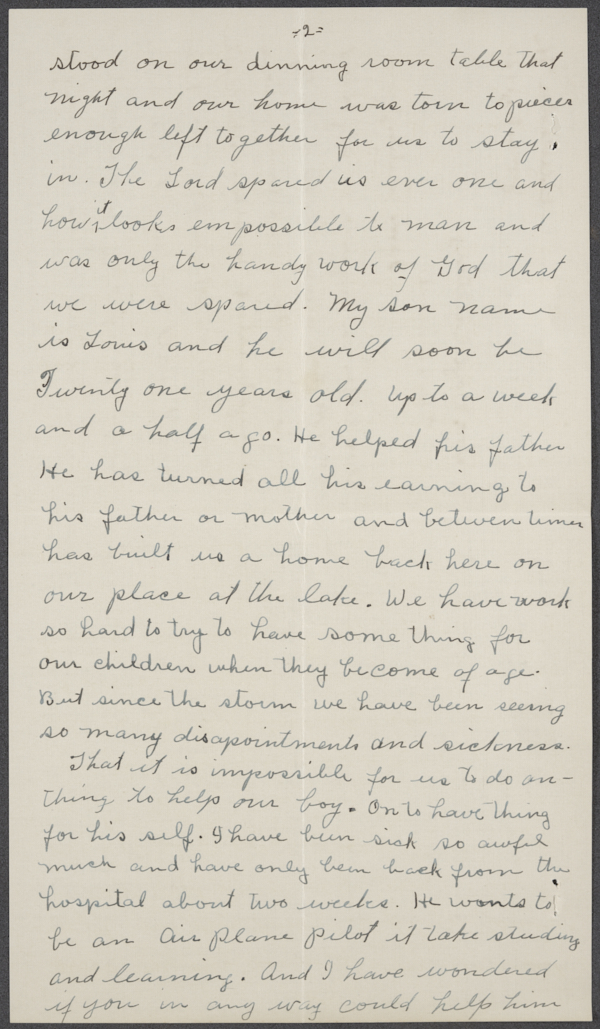 -2-
stood on our dinning room table that
night and our home was torn to pieces
enough left together for us to stay
in. The Lord spared us ever one and
how it looks empossible to man and
was only the handy work of God that
we were spared. My son name
is Louis and he will soon be
Twenty one years old. Up to a week
and a half ago. He helped his father
He has turned all his earning to
his father or mother and between times
has built us a home back here on
our place at the lake. We have work
so hard to try to have some thing for
our children when they become of age.
But since the storm we have been seeing
so many disapointments and sickness.
That it is impossible for us to do an-
thing to help our boy. On to have thing
for his self. I have been sick so awful
much and have only been back from the
hospital about two weeks. He wants to
be an Air plane pilot it take studing
and learning. And I have wondered
if you in any way could help him